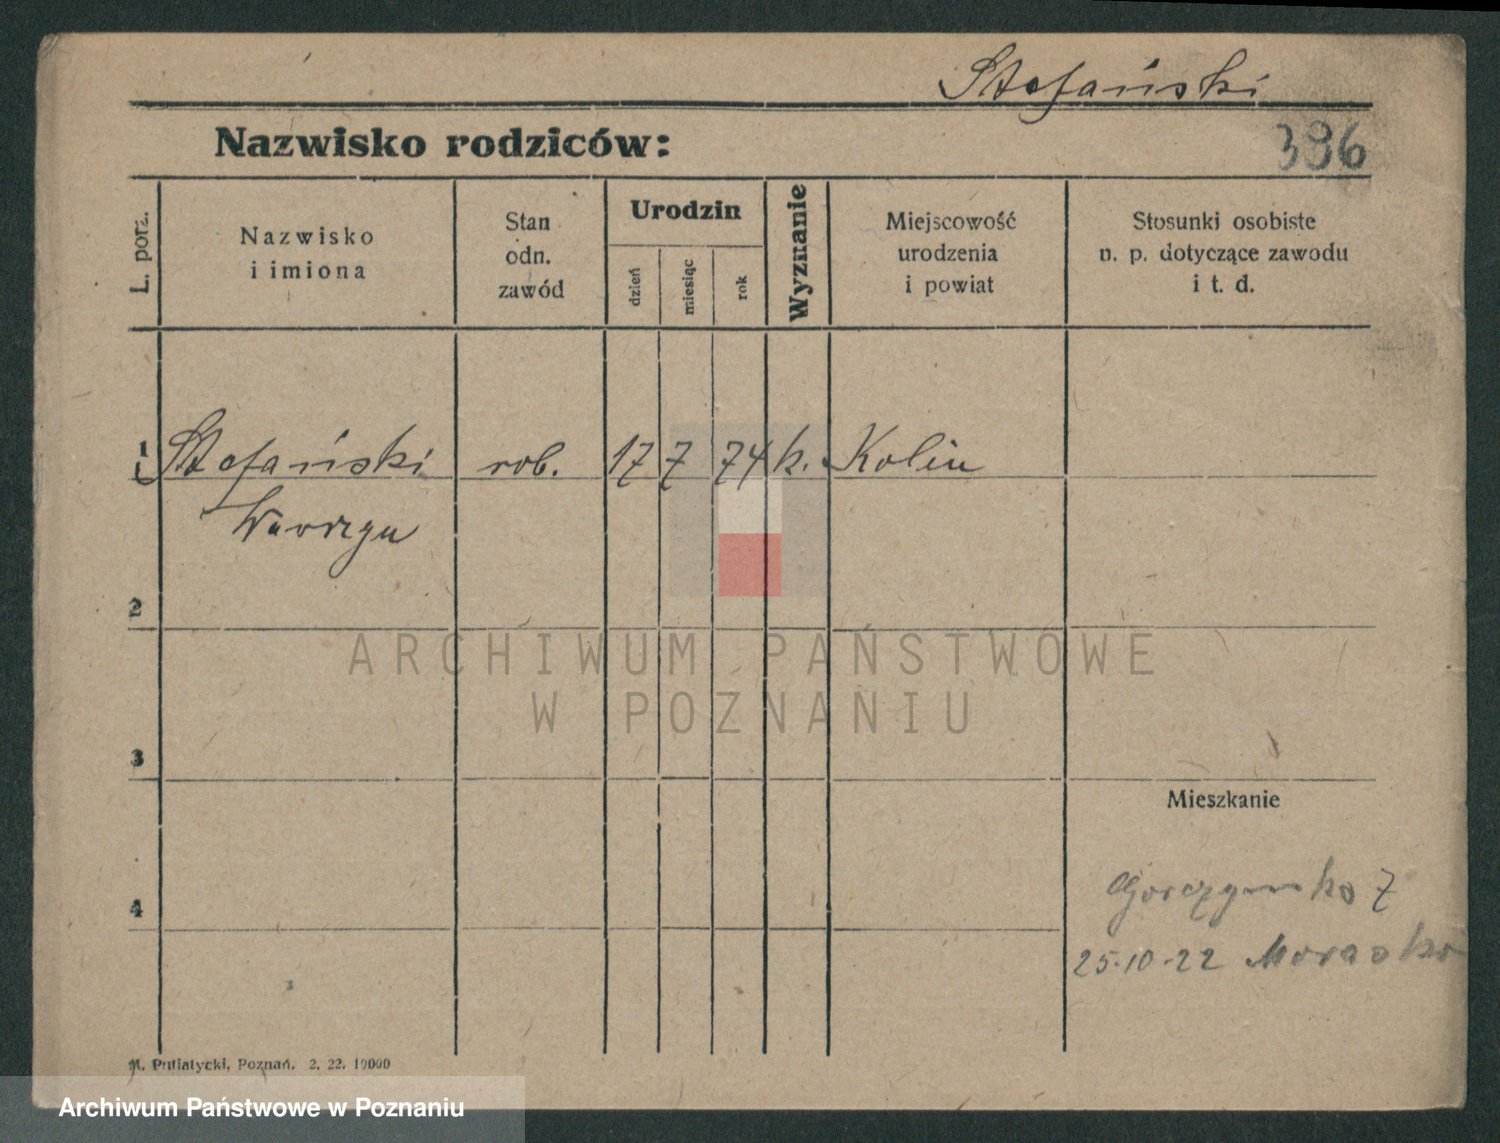 Stefański
Nazwisko rodziców:
396
L. porz.
Nazwisko
i imiona
Stan
odn.
zawód
Urodzin
dzień
miesiąc
rok
Wyznanie
Miejscowość
urodzenia
i powiat
Stosunki osobiste
n. p. dotyczące zawodu
i t. d.
1 Stefański rob. 17 7 74 k. Kolin
Wawrzyn
2
ARCHIWUM PAŃSTWOWE
W POZNANIU
3
Mieszkanie
4
7
25.10.22 Morasko
M. Putiatycki, Poznań. 2. 22. 10000
Archiwum Państwowe w Poznaniu